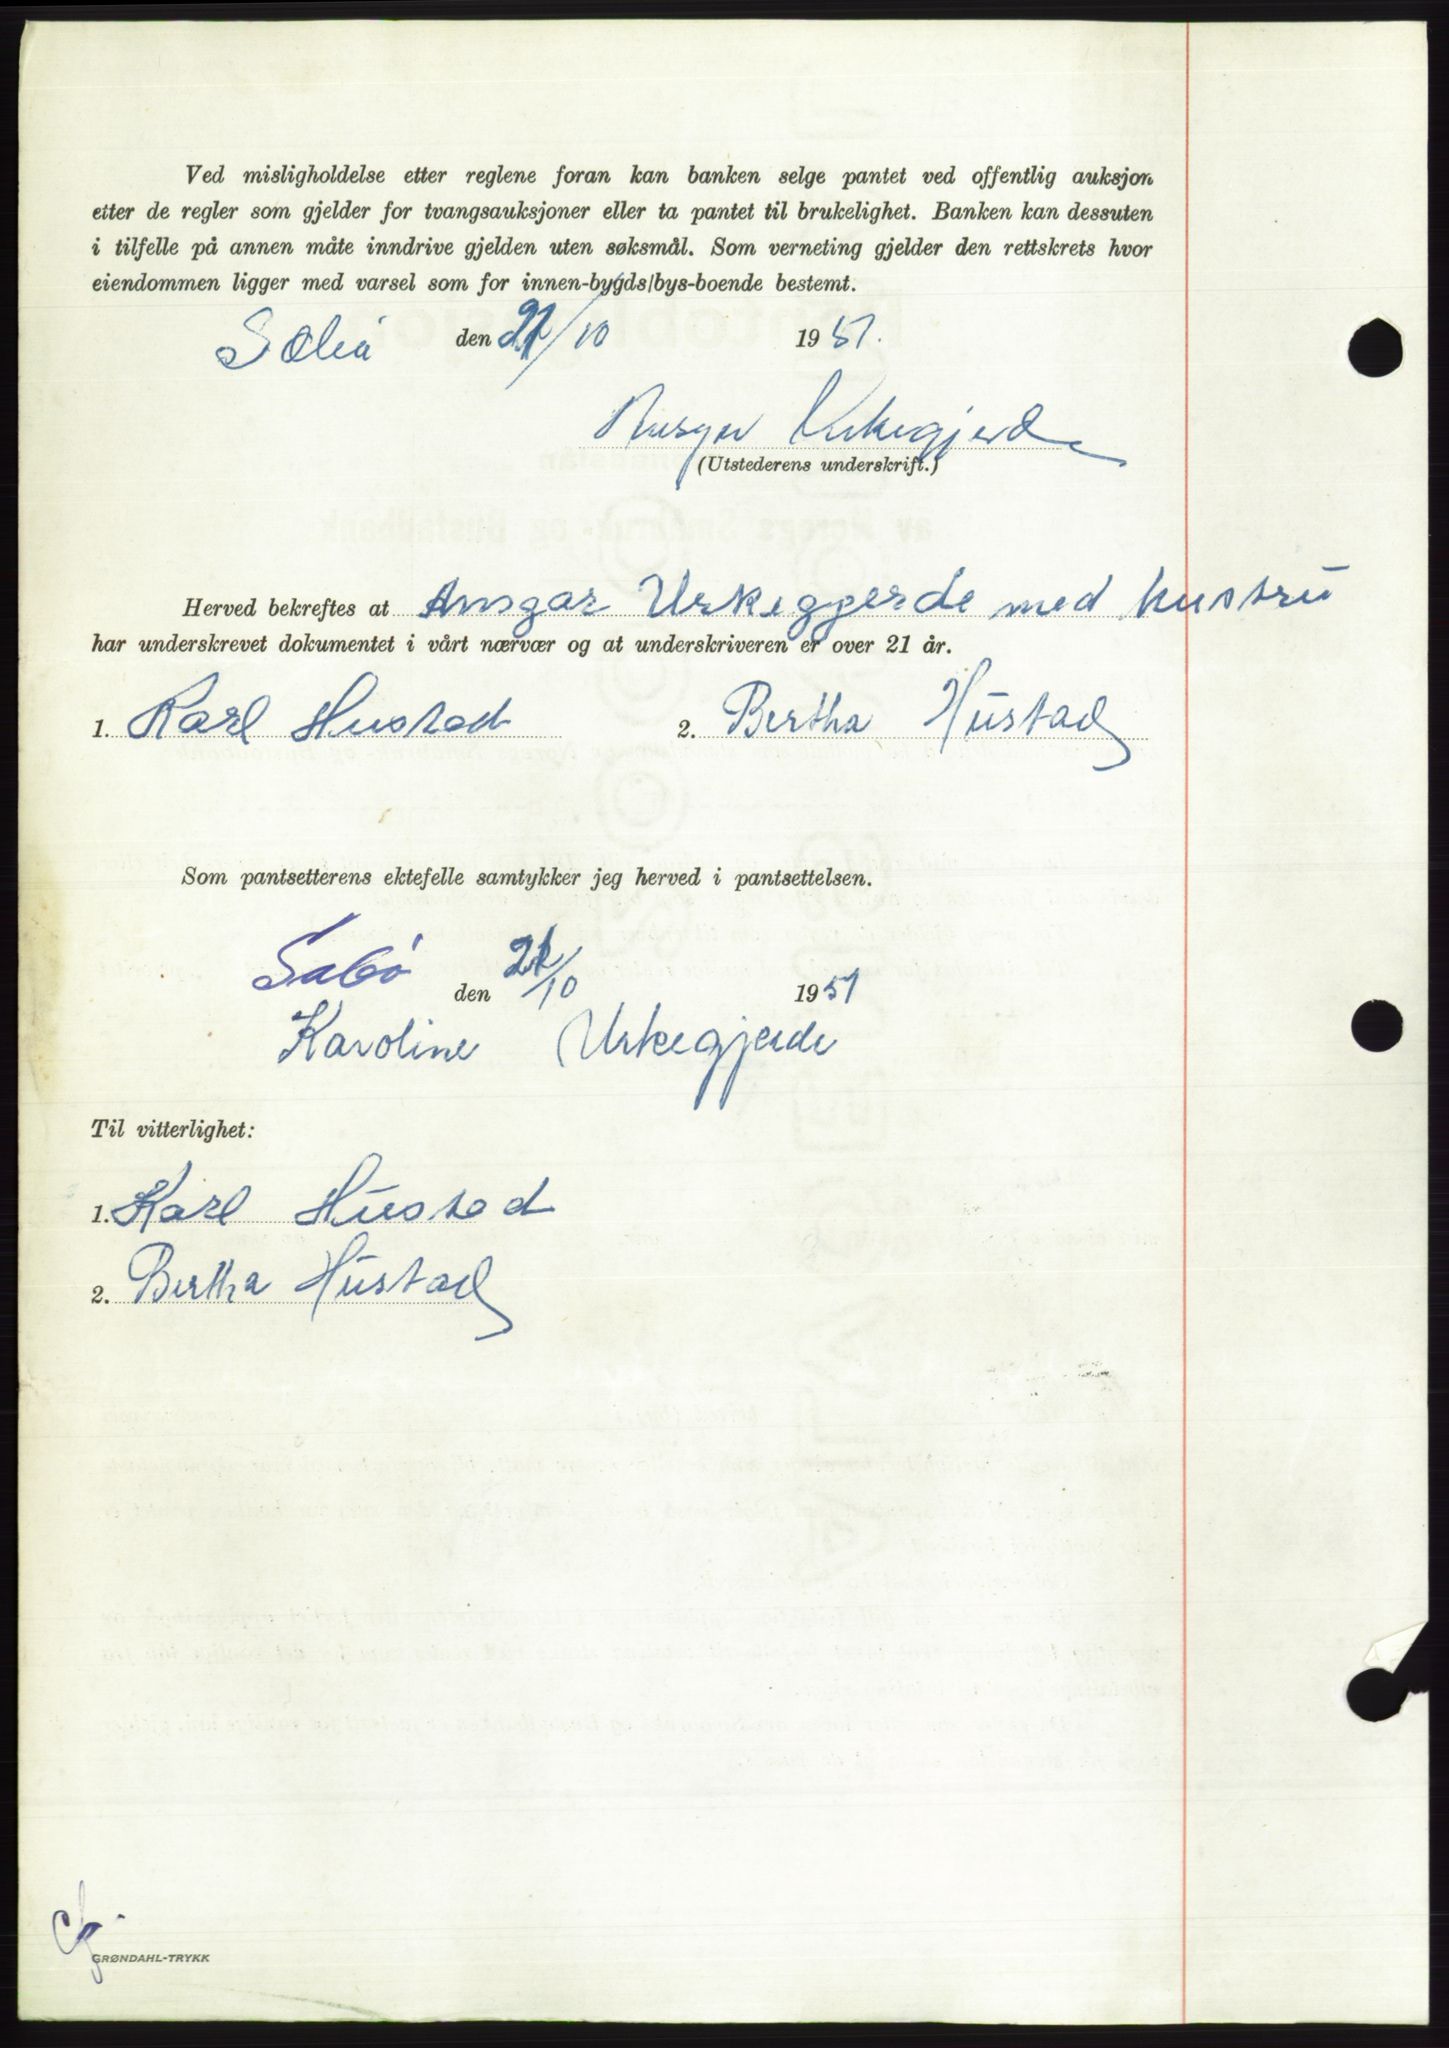 Ved misligholdelse etter reglene foran kan banken selge pantet ved offentlig auksjon
etter de regler som gjelder for tvangsauksjoner eller ta pantet til brukelighet. Banken kan dessuten
i tilfelle på annen måte inndrive gjelden uten søksmål. Som verneting gjelder den rettskrets hvor
eiendommen ligger med varsel som for innen-bygds/bys-boende bestemt.
den 21/10 1951.
Ansgar Urkegjerde
(Utstederens underskrift.)
Herved bekreftes at Ansgar Urkegjerde med hustru
har underskrevet dokumentet i vårt nærvær og at underskriveren er over 21 år.
1. Karl Hustad 2. Bertha Hustad
Som pantsetterens ektefelle samtykker jeg herved i pantsettelsen.
Sæbø den 21/10 1951
Karoline Urkegjerde
Til vitterlighet:
1. Karl Hustad
2. Bertha Hustad
GRØNDAHL-TRYKK